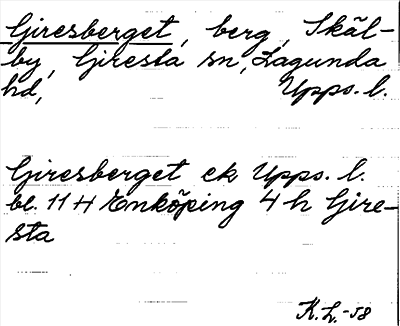 Giresberget, berg, Skäl-
by, Giresta sn, Lagunda
hd, Upps. l.
Giresberget ek Upps. l.
bl. 11 H Enköping 4 h Gire-
sta
K.L.-58